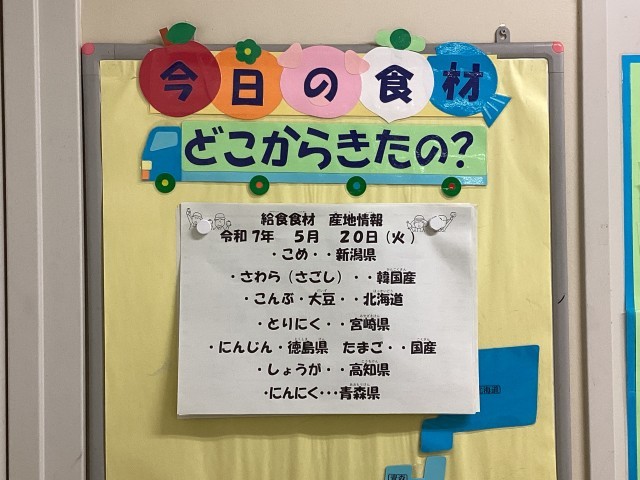 今日の食材
どこからきたの?
給食食材 産地情報
令和 7年 5月 20日(火)
・こめ・・新潟県
・さわら(さごし)・・韓国産
・こんぶ・大豆・・北海道
・とりにく・・宮崎県
・にんじん・徳島県 たまご・・国産
・しょうが・・高知県
・にんにく・・・青森県
北海道
青森